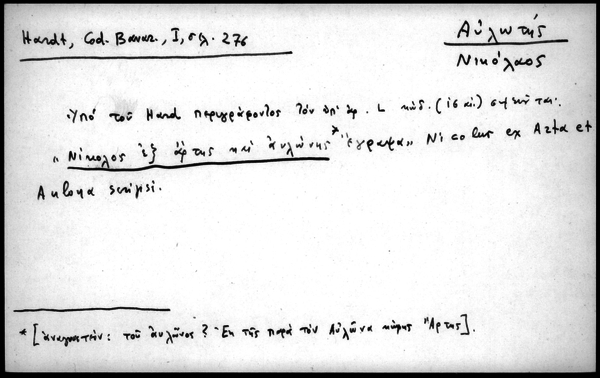 Hardt, Cod. Bavar., I, σελ. 276
Αὐλωτής
Νικόλαος
Ὑπό τοῦ Hard περιγράφοντος τόν ὑπ' ἀρ. κώδ. (ις αἰ.) σημειοῦται:
"Νίκολος ἐξ ἄρτης καὶ ἀυλώνης* ἔγραψα" Nicolus ex Azta et
Aulona scripsi.
* [ἀναγνωστέον: τοῦ ἀυλῶνος? Ἐκ τῆς παρά τόν Αὐλῶνα κώμης Ἄρτης].